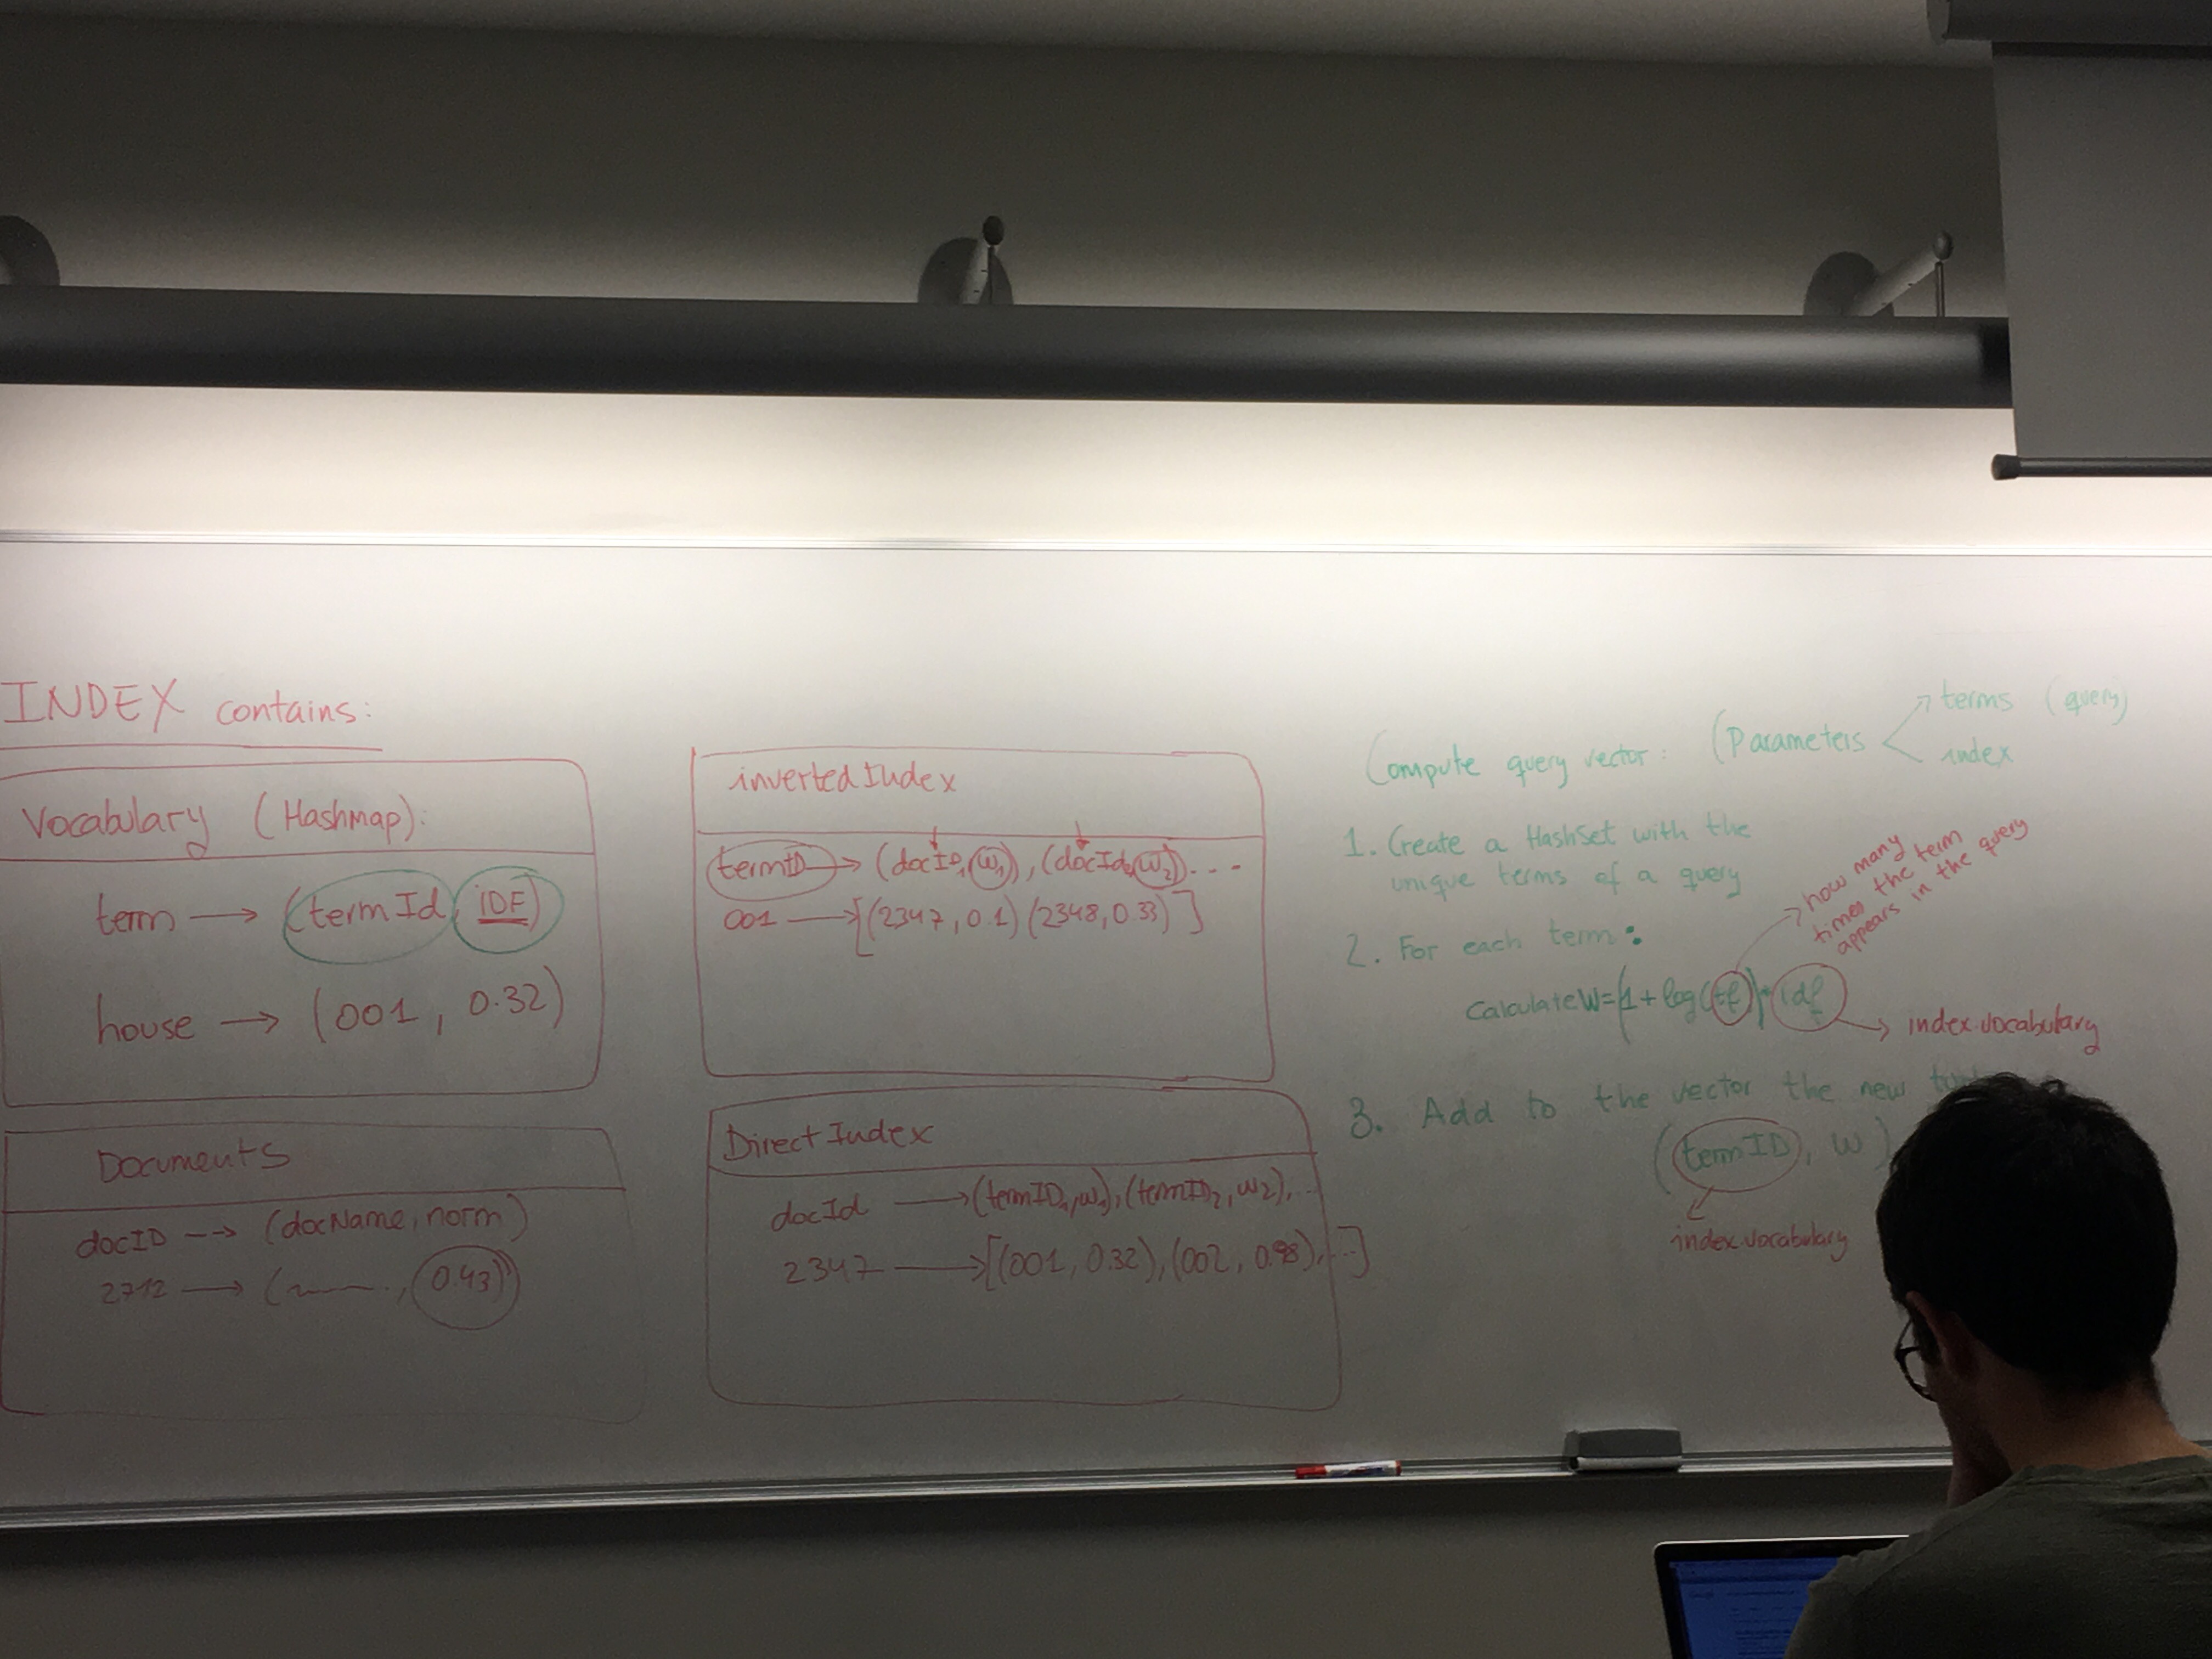 INDEX contains:
Vocabulary (Hashmap):
term → (termId, IDF)
house → (001, 0.32)
Documents
docID --→ (docName, norm)
2712 → ( , 0.43)
invertedIndex
termID → (docID1, w1), (docId2, w2)...
001 → [(2347, 0.1) (2348, 0.33) ]
DirectIndex
docId → (termID1, w1), (termID2, w2), ...
2347 → [(001, 0.32), (002, 0.98), ...]
Compute query vector: (Parameters
terms (query)
index
1. Create a HashSet with the
unique terms of a query
2. For each term:
how many
times the term
appears in the query
CalculateW=(1 + log(tf)) * idf
→ index.vocabulary
3. Add to the vector the new
(termID, w)
index.vocabulary